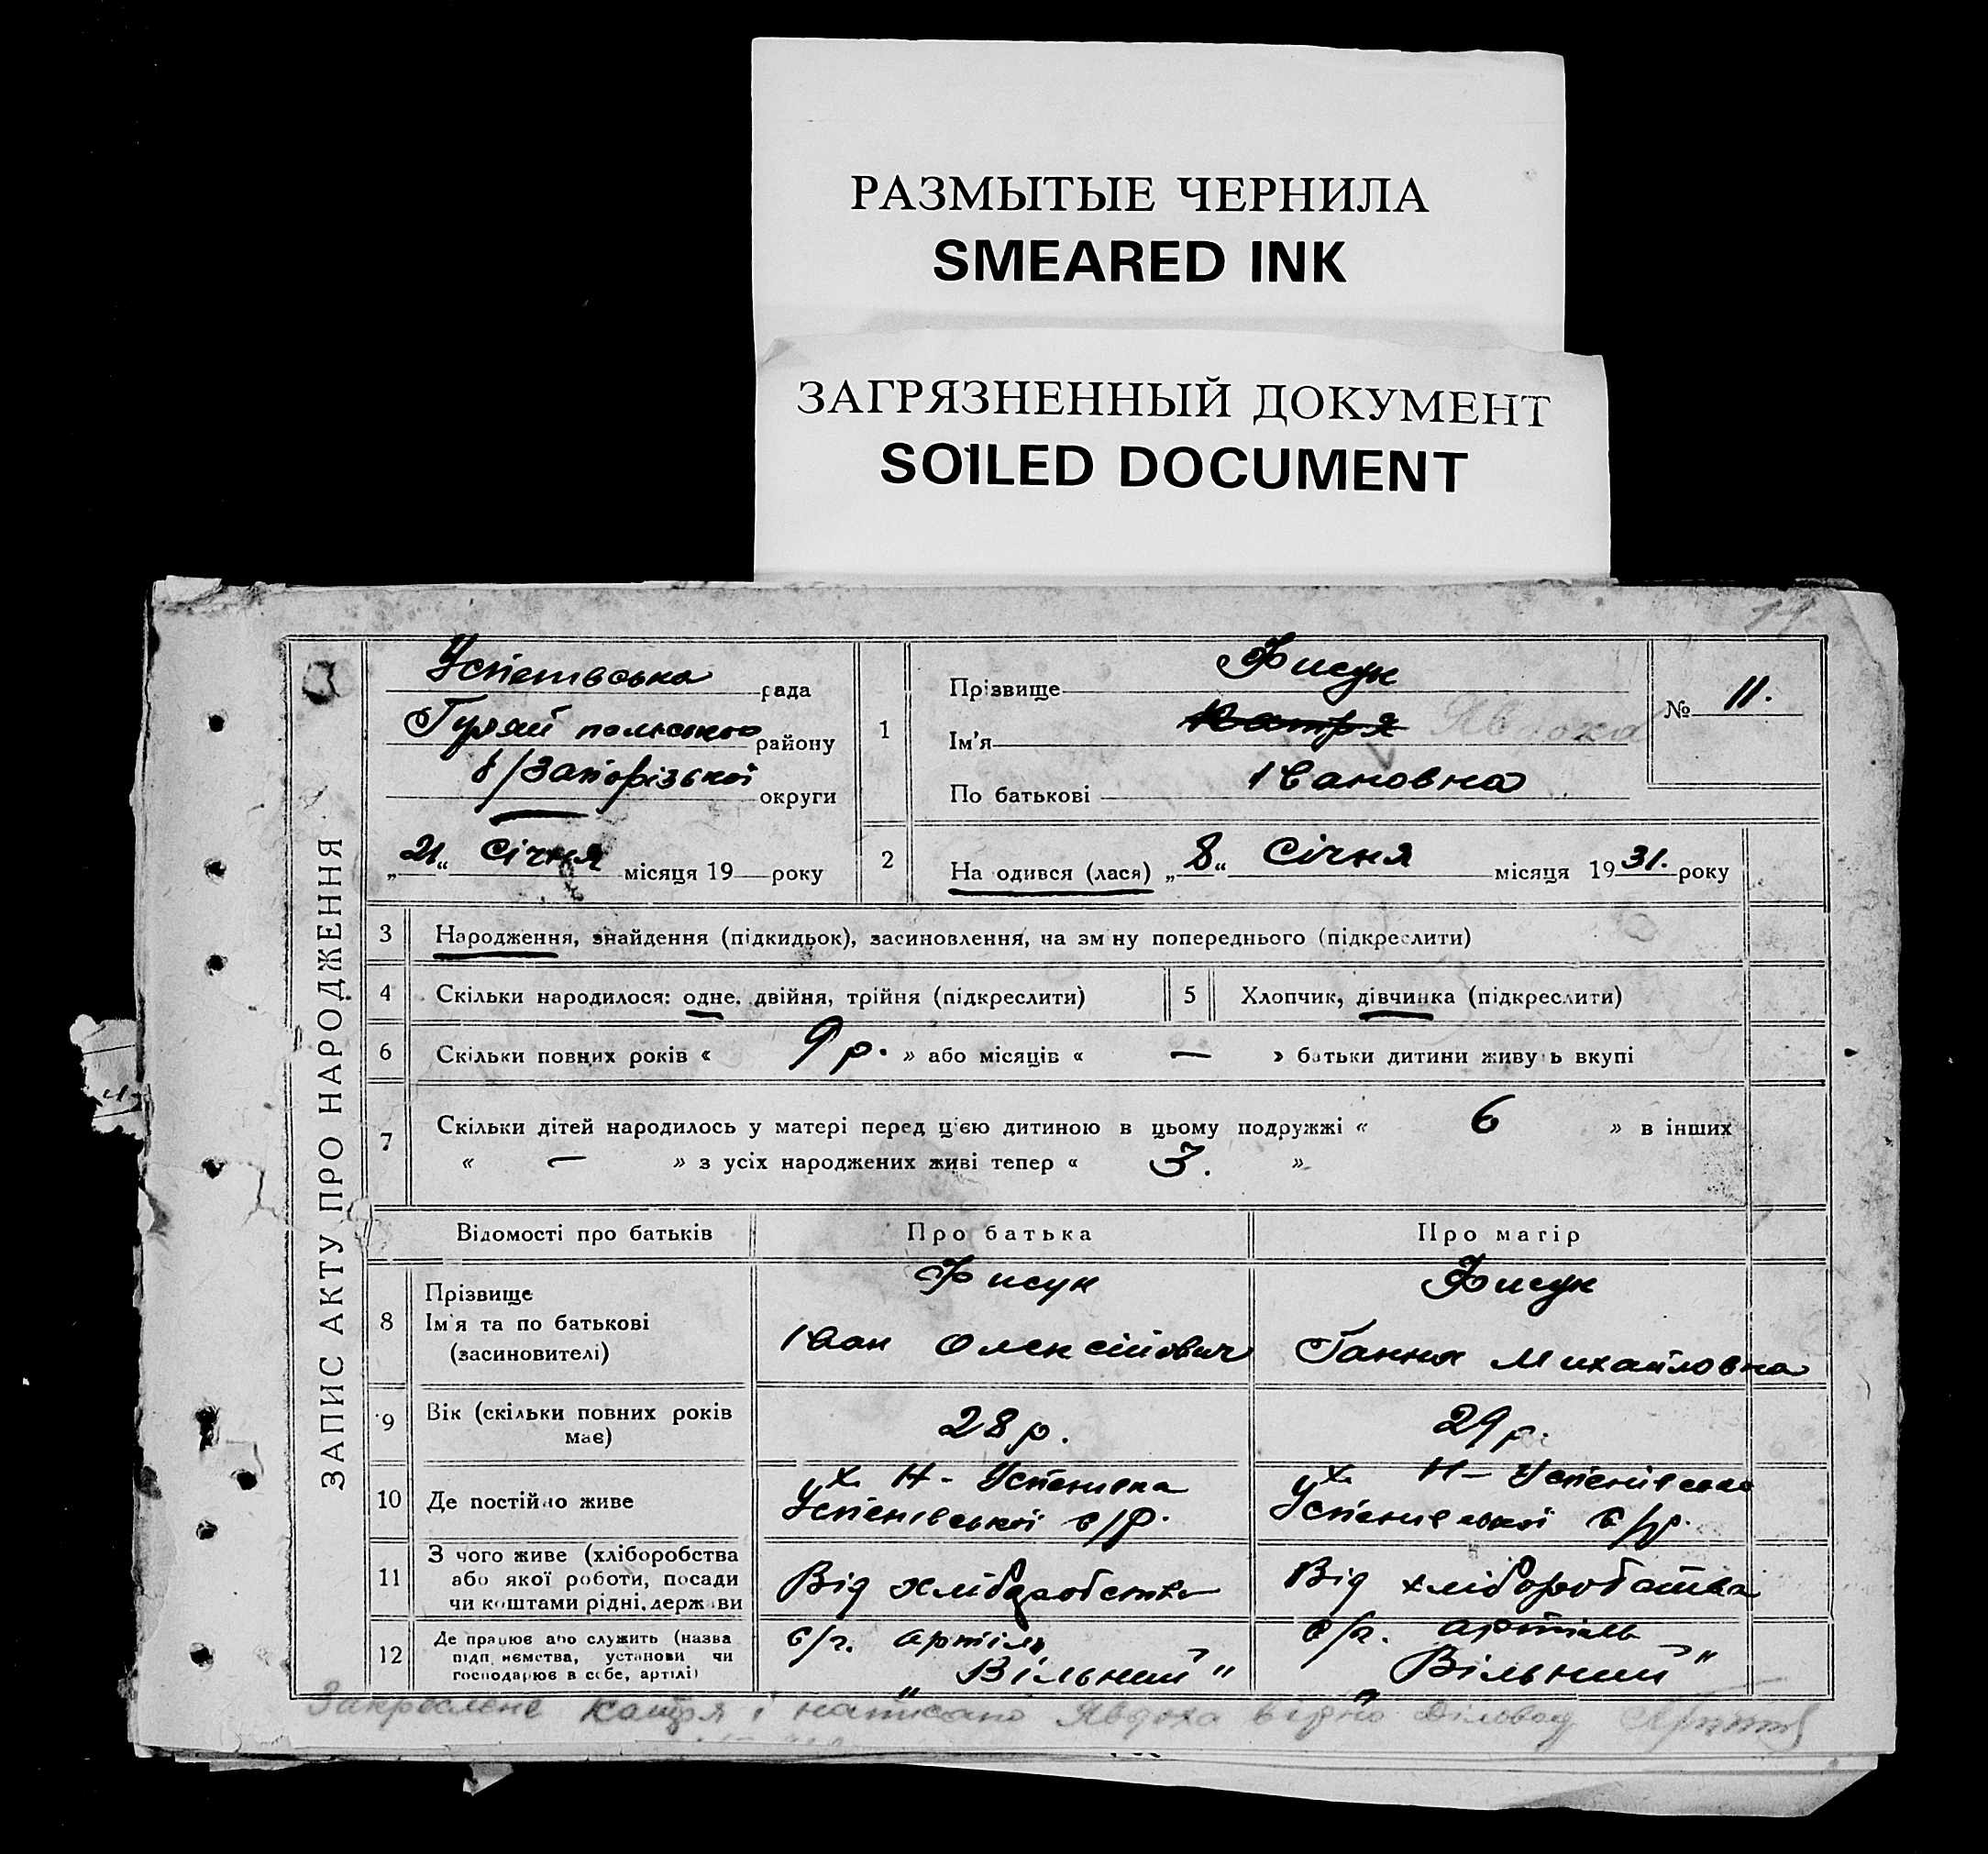 РАЗМЫТЫЕ ЧЕРНИЛА
SMEARED INK
ЗАГРЯЗНЕННЫЙ ДОКУМЕНТ
SOILED DOCUMENT
ЗАПИС АКТУ ПРО НАРОДЖЕННЯ
Успенівська рада
Гуляй польського району
б/Запорізької округи
„21“ Січня місяця 19 року
1
Прізвище Фисун
Ім'я Катря Явдоха
По батькові Івановна
№ 11.
2
Народився (лася) „8“ Січня місяця 1931. року
3 Народження, знайдення (підкидьок), засиновлення, на зміну попереднього (підкреслити)
4 Скільки народилося: одне, двійня, трійня (підкреслити)
5 Хлопчик, дівчинка (підкреслити)
6 Скільки повних років « 9 р. » або місяців « — » батьки дитини живуть вкупі
7 Скільки дітей народилось у матері перед цією дитиною в цьому подружжі « 6 » в інших
« — » з усіх народжених живі тепер « 3. »
Відомості про батьків Про батька Про матір
8 Прізвище
Ім'я та по батькові
(засиновителі)
Фисун
Іван Олексійович
Фисун
Ганна Михайловна
9 Вік (скільки повних років
має)
28 р.
29 р.
10 Де постійно живе
х. Н-Успенивка
Успенівської с/р.
х. Н-Успенівка
Успенивської с/р.
11 З чого живе (хліборобства
або якої роботи, посади
чи коштами рідні, держави
Від хліборобства
Від хліборобства
12 Де працює або служить (назва
підприємства, установи чи
господарює в себе, артілі)
с/г. артіль
„Вільний"
с/г. артіль
„Вільний"
Закреслене Катря і написано Явдоха вірно Діловод